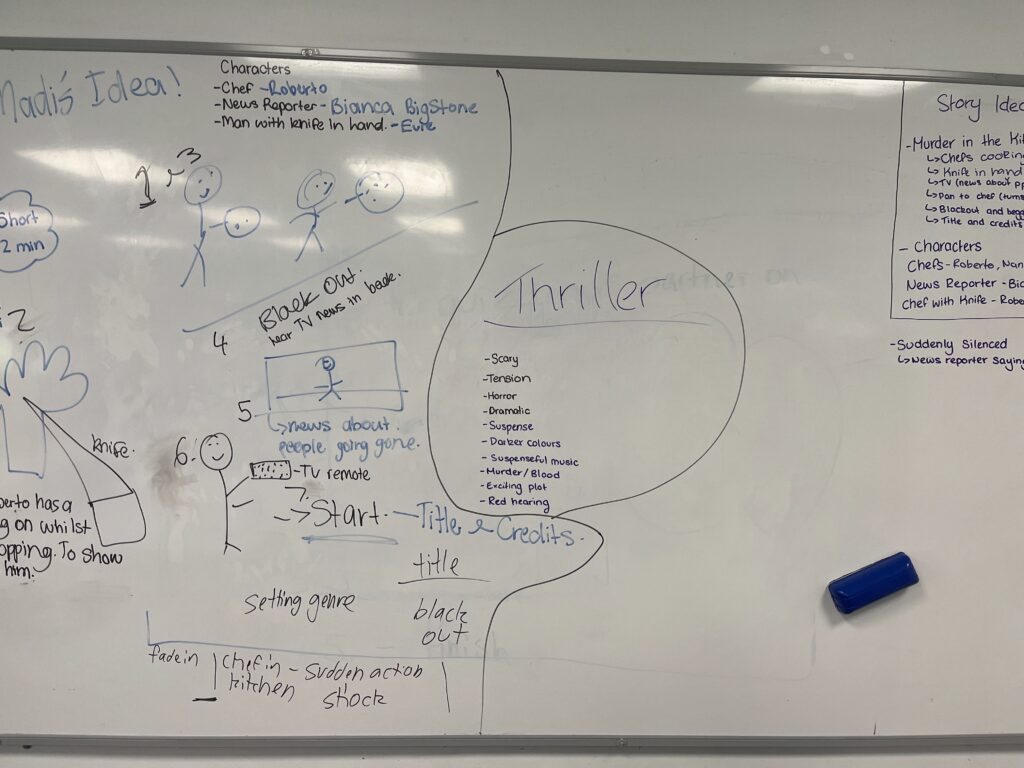 Madi's Idea!
Characters
-Chef -Roberto
-News Reporter - Bianca BigStone
-Man with knife in hand. - Evie
1
3
Short
2 min
2
Black Out.
hear TV news in back.
4
5
↳news about
people going gone.
knife.
6.
-TV remote
7.
->Start. - Title & Credits.
has a
on whilst
To show
him.
title
setting genre
black
out
fade in
chef in
kitchen
- sudden action
shock
Thriller
-Scary
-Tension
-Horror
-Dramatic
-Suspense
- Darker colours
- Suspenseful music
-Murder/Blood
-Exciting plot
- Red hearing
Story Idea
-Murder in the Kit
↳Chefs cooking
↳Knife in hand
↳TV (news about pp
↳Pan to chef (turns
↳Blackout and begg
↳Title and credits
- Characters
Chefs-Roberto, Nan
News Reporter -Bia
Chef with Knife - Robe
-Suddenly Silenced
↳News reporter saying